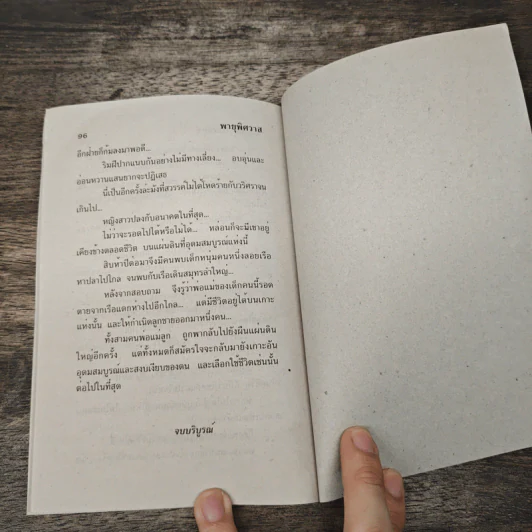 ๑๖ พายุพิศวาส
อีกฝ่ายก็ก้มลงมาพอดี...
ริมฝีปากแนบกันอย่างไม่มีทางเลี่ยง... อบอุ่นและ
อ่อนหวานแสนยากจะปฏิเสธ
นี่เป็นอีกครั้งละมังที่สวรรค์ไม่ได้โหดร้ายกับวริศราจน
เกินไป...
หญิงสาวปลงกับอนาคตในที่สุด...
ไม่ว่าจะรอดไปได้หรือไม่ได้... หล่อนก็จะมีเขาอยู่
เคียงข้างตลอดชีวิต บนแผ่นดินที่อุดมสมบูรณ์แห่งนี้
สิบห้าปีต่อมาจึงมีคนพบเด็กหนุ่มคนหนึ่งลอยเรือ
หาปลาไปไกล จนพบกับเรือเดินสมุทรลำใหญ่...
หลังจากสอบถาม จึงรู้ว่าพ่อแม่ของเด็กคนนี้รอด
ตายจากเรือแตกห่างไปอีกไกล... แต่มีชีวิตอยู่ได้บนเกาะ
แห่งนั้น และให้กำเนิดลูกชายออกมาหนึ่งคน...
ทั้งสามคนพ่อแม่ลูก ถูกพากลับไปยังผืนแผ่นดิน
ใหญ่อีกครั้ง แต่ทั้งหมดก็สมัครใจจะกลับมายังเกาะอัน
อุดมสมบูรณ์และสงบเงียบของตน และเลือกใช้ชีวิตเช่นนั้น
ต่อไปในที่สุด
จบบริบูรณ์